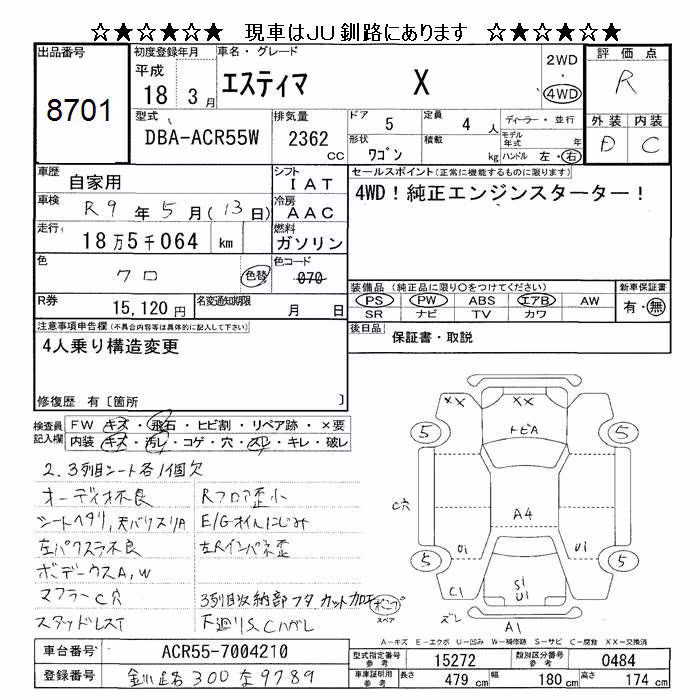 ☆★☆★☆★ 現車はJU釧路にあります ☆★☆★☆★
出品番号 8701
初度登録年月 平成 18 年 3 月
車名・グレード エスティマ X
2WD 4WD
評価点 R
外装 D 内装 C
型式 DBA-ACR55W
排気量 2362 CC
ドア 5 定員 4 人
形状 ワゴン 積載 kg
ディーラー・並行
モデル年式 年
ハンドル 左・右
車歴 自家用
シフト IAT
車検 R9 年 5 月(13日)
冷房 AAC
走行 18万5千064 km
燃料 ガソリン
色 クロ 色替
色コード 070
R券 15,120円
名変通知期限 月 日
セールスポイント(正常に機能するものに限ります)
4WD!純正エンジンスターター!
装備品(純正品に限り○をつけてください)
PS PW ABS エアB AW
SR ナビ TV カワ
新車保証書 有・無
後日品 保証書・取説
注意事項申告欄(不具合内容等は具体的に記入して下さい)
4人乗り構造変更
修復歴 有〔箇所 〕
検査員記入欄
FW キズ・飛石・ヒビ割・リペア跡・×要
内装 キズ・汚レ・コゲ・穴・スレ・キレ・破レ
2.3列目シート各1個欠
オーディオ不良 Rフロア歪小
シートヘタリ,天バリスリA E/Gオイルにじみ
左パワスラ不良 左Rインパネ歪
ボデーウスA,W
マフラーC穴 3列目収納部フタ カットカロキ
スタッドレスT 下廻りS,Cハガレ
××
××
トビA
5
5
C穴
A4
U1
U1
5
5
C1
S1
U1
ズレ
A1
スペア
A-キズ E-エクボ U-凹み W-補修跡 S-サビ C-腐食 XX-交換済
車台番号 ACR55-7004210
登録番号 釧路 300 な 9789
型式指定番号 参考 15272
類別区分番号 参考 0484
車庫証明用 参考 長さ 479 cm 幅 180 cm 高さ 174 cm